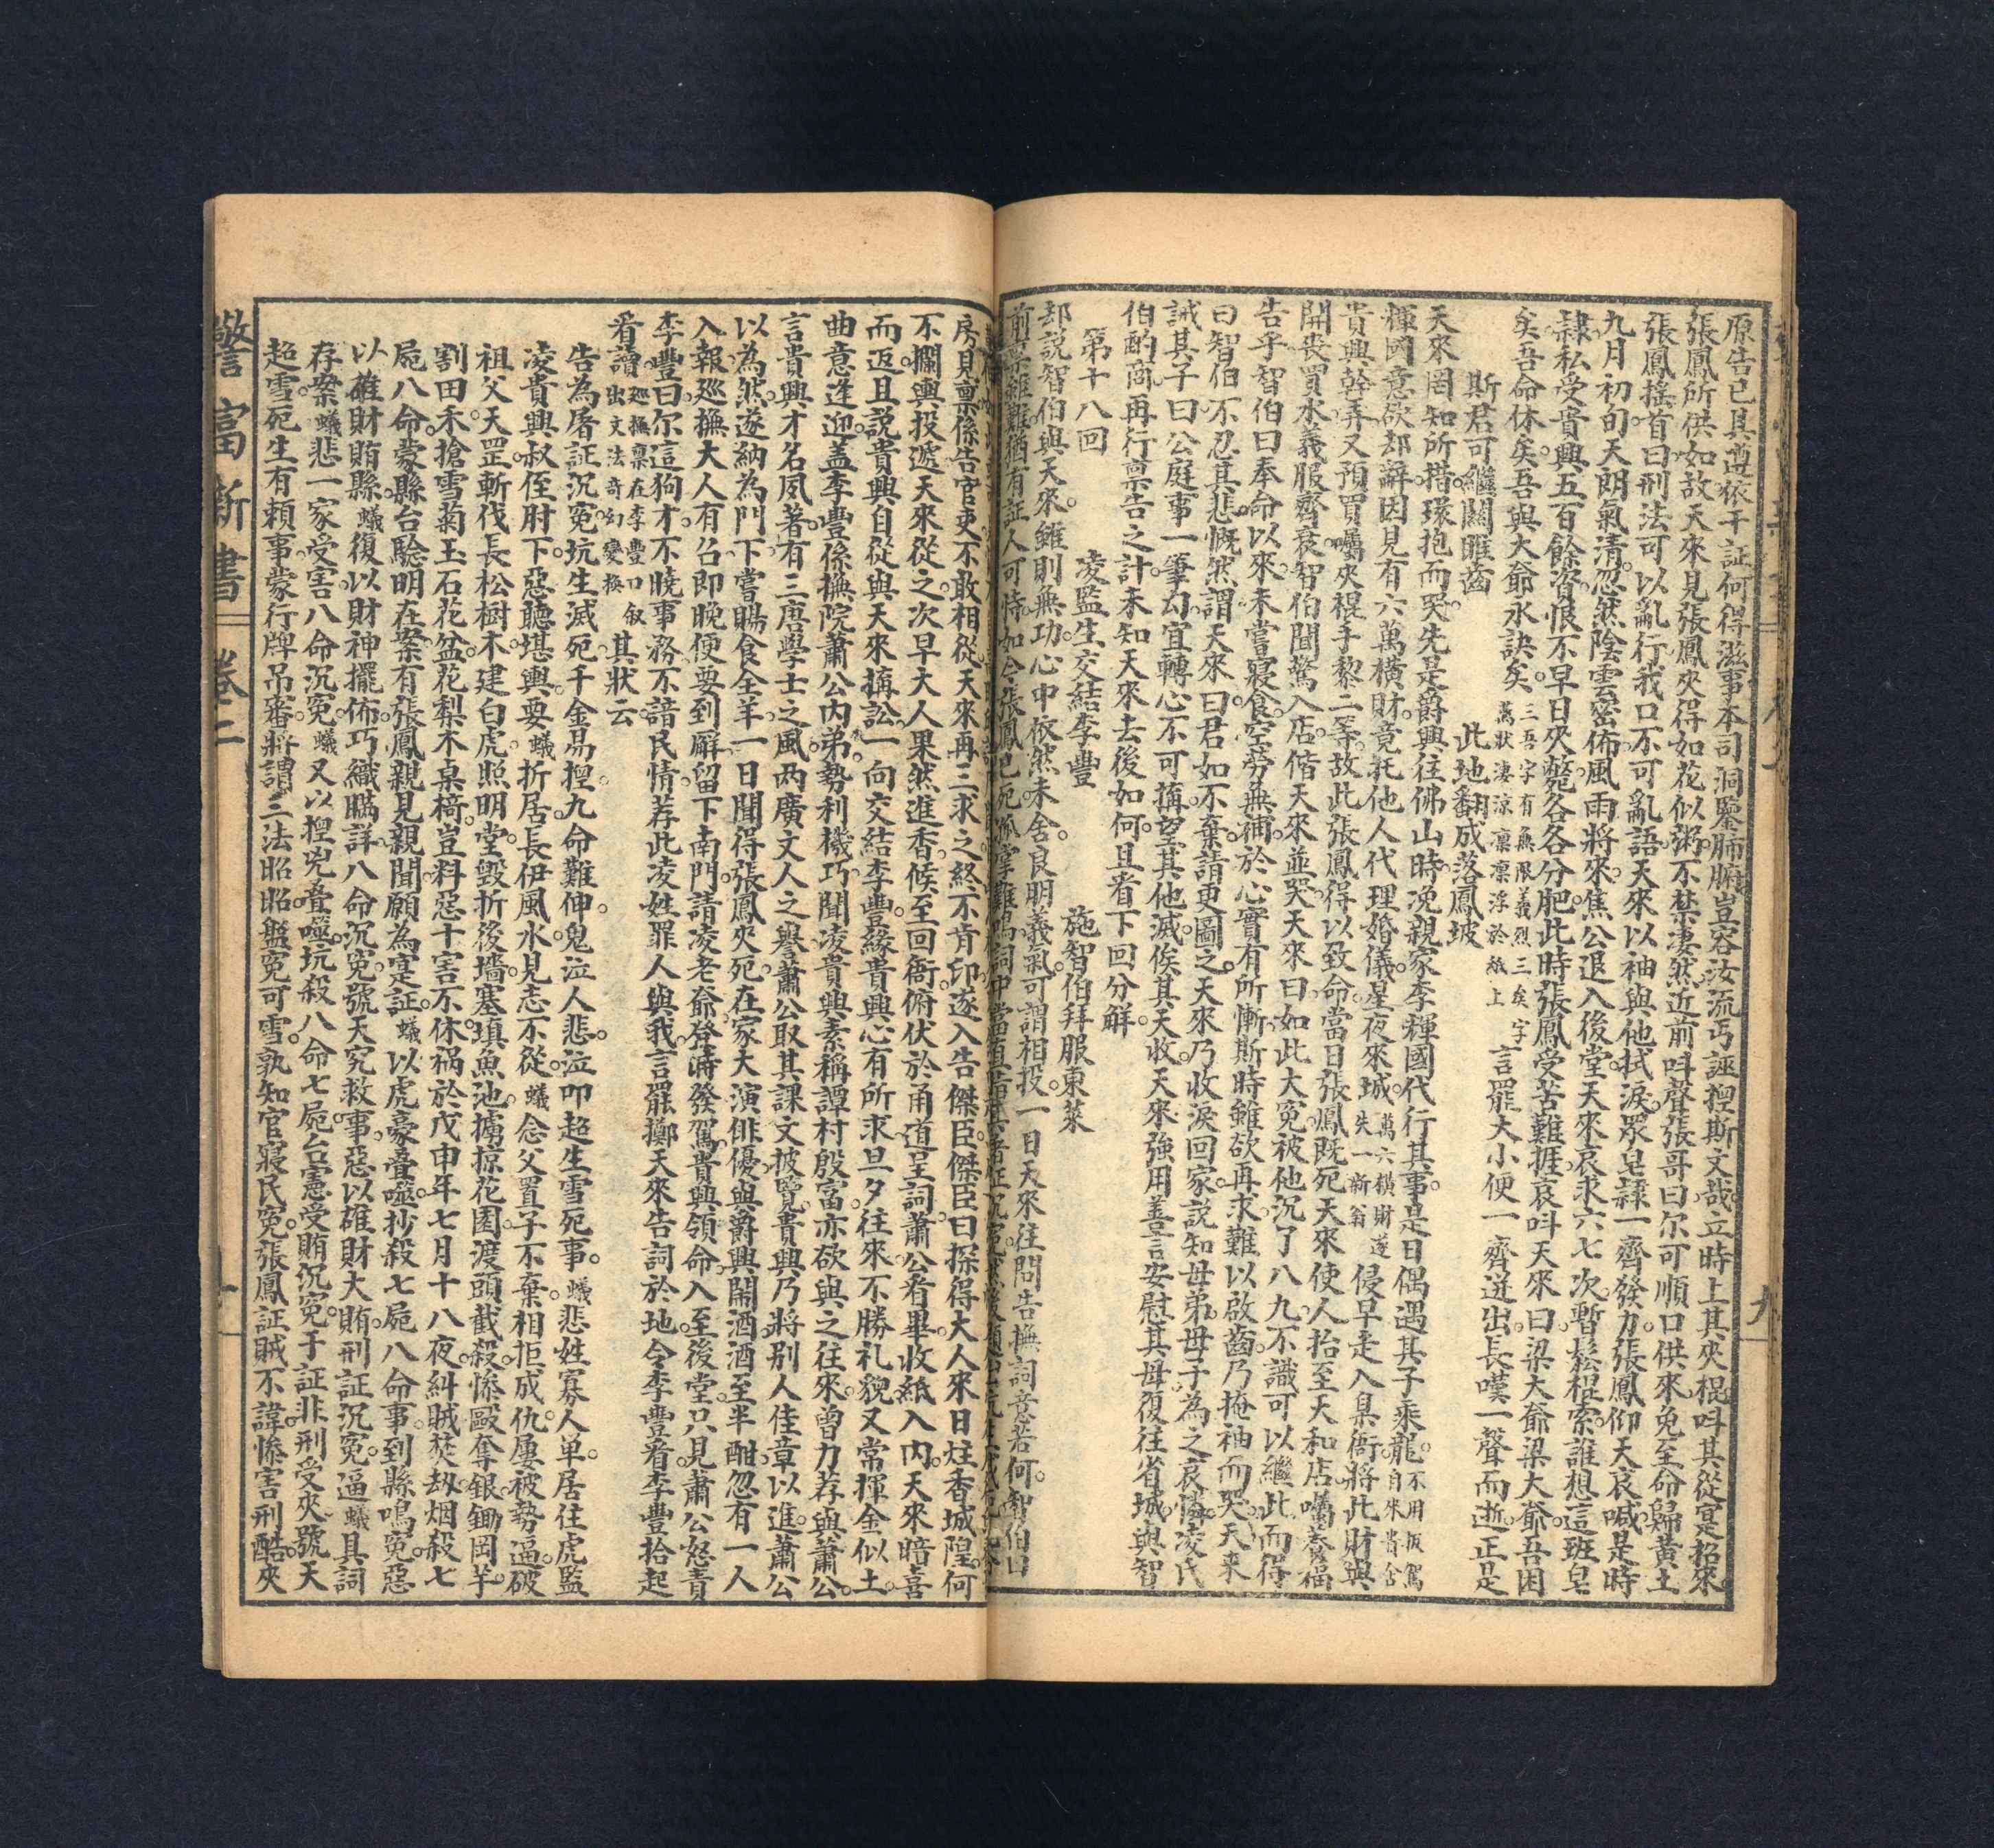 原告已具遵依干証何得滋事本司洞鑒肺腑豈容汝流丐誣捏斯文哉立時上其夾棍叫其從寔招來
張鳳所供如故天來見張鳳夾得如花似粥不禁凄然近前叫聲張哥曰尔可順口供來免至命歸黃土
張鳳搖首曰刑法可以亂行我口不可亂語天來以袖與他拭淚眾皂隸一齊發力張鳳仰天哀喊是時
九月初旬天朗氣清忽然陰雲密佈風雨將來焦公退入後堂天來哀求六七次暫鬆桎索誰想這班皂
隸私受貴興五百餘資恨不早日夾斃各各分肥此時張鳳受苦難捱哀叫天來曰梁大爺梁大爺吾困
矣吾命休矣吾與大爺永訣矣三吾字有無限義烈三矣字萬狀凄涼凛凛浮於紙上言罷大小便一齊迸出長嘆一聲而逝正是
斯君可繼關睢齒 此地翻成落鳳坡
天來罔知所措環抱而哭先是爵興往佛山時浼親家李輝國代行其事是日偶遇其子乘龍不用扳駕自來貴舍
輝國意欲却辭因見有六萬橫財竟托他人代理婚儀星夜來城萬六橫財遂失一新翁侵早走入臬衙將此財與
貴興幹弄又預買囑夾棍手黎二等故此張鳳得以致命當日張鳳既死天來使人抬至天和店囑養福
開喪買水義服齊衰智伯聞驚入店偕天來並哭天來曰如此大冤被他沉了八九不識可以繼此而得
告乎智伯曰奉命以來未嘗寢食空勞無補於心實有所慚斯時雖欲再求難以啟齒乃掩袖而哭天來
曰智伯不忍其悲慨然謂天來曰君如不棄請更圖之天來乃收淚回家說知母弟母子為之哀悼凌氏
誡其子曰公庭事一筆勾宜轉心不可搆望其他滅俟其天收天來強用善言安慰其母復往省城與智
伯酌商再行禀告之計未知天來去後如何且看下回分解
第十八回 凌監生交結李豐 施智伯拜服東萊
却說智伯與天來雖則無功心中依然未舍良朋義氣可謂相投一日天來往問告撫詞意若何智伯曰
房見禀係告官吏不敢相從天來再三求之終不肯印遂入告傑臣傑臣曰探得大人來日炷香城隍何
不攔輿投遞天來從之次早大人果然進香候至回衙俯伏於甬道呈詞蕭公看畢收紙入內天來暗喜
而返且說貴興自從與天來搆訟一向交結李豐緣貴興心有所求旦夕往來不勝礼貌又常揮金似土
曲意逢迎盖李豐係撫院蕭公內弟勢利機巧聞凌貴興素稱譚村殷富亦欲與之往來曾力荐與蕭公
言貴興才名夙著有三唐學士之風両廣文人之譽蕭公取其課文披覽貴興乃將別人佳章以進蕭公
以為然遂納為門下嘗賜食全羊一日聞得張鳳夾死在家大演俳優與爵興鬧酒酒至半酣忽有一人
入報廵撫大人有召即晚便要到廨留下南門請凌老爺登時發駕貴興領命入至後堂只見蕭公怒責
李豐曰尔這狗才不曉事務不諳民情荐此凌姓罪人與我言罷擲天來告詞於地令李豐看李豐拾起
看讀廵撫禀在李豐口叙出文法奇幻變換其狀云
告為屠証沉冤坑生滅死千金易捏九命難伸鬼泣人悲泣叩超生雪死事蟻悲姓寡人单居住虎監
凌貴興叔侄肘下惡聽堪輿要蟻折居長伊風水見志不從蟻念父置子不棄相拒成仇屢被勢逼破
祖父天罡斬伐長松樹木建白虎照明堂毀折後墻塞瑱魚池擄掠花園渡頭截殺慘毆奪銀鋤岡芋
割田禾搶雪菊玉石花盆花梨木桌椅豈料惡十害不休禍於戊申年七月十八夜糾賊焚刼烟殺七
屍八命蒙縣台驗明在案有張鳳親見親聞願為寔証蟻以虎豪疊噬抄殺七屍八命事到縣鳴冤惡
以雄財賄縣蟻復以財神擺佈巧織瞞詳八命沉冤號天究救事惡以雄財大賄刑証沉冤逼蟻具詞
存案蟻悲一家受害八命沉冤蟻又以捏兇疊噬坑殺八命七屍台憲受賄沉冤于証非刑受夾號天
超雪死生有賴事蒙行牌吊審將謂三法昭昭盤冤可雪孰知官寢民冤張鳳証賊不諱慘害刑酷夾
警富新書 卷二